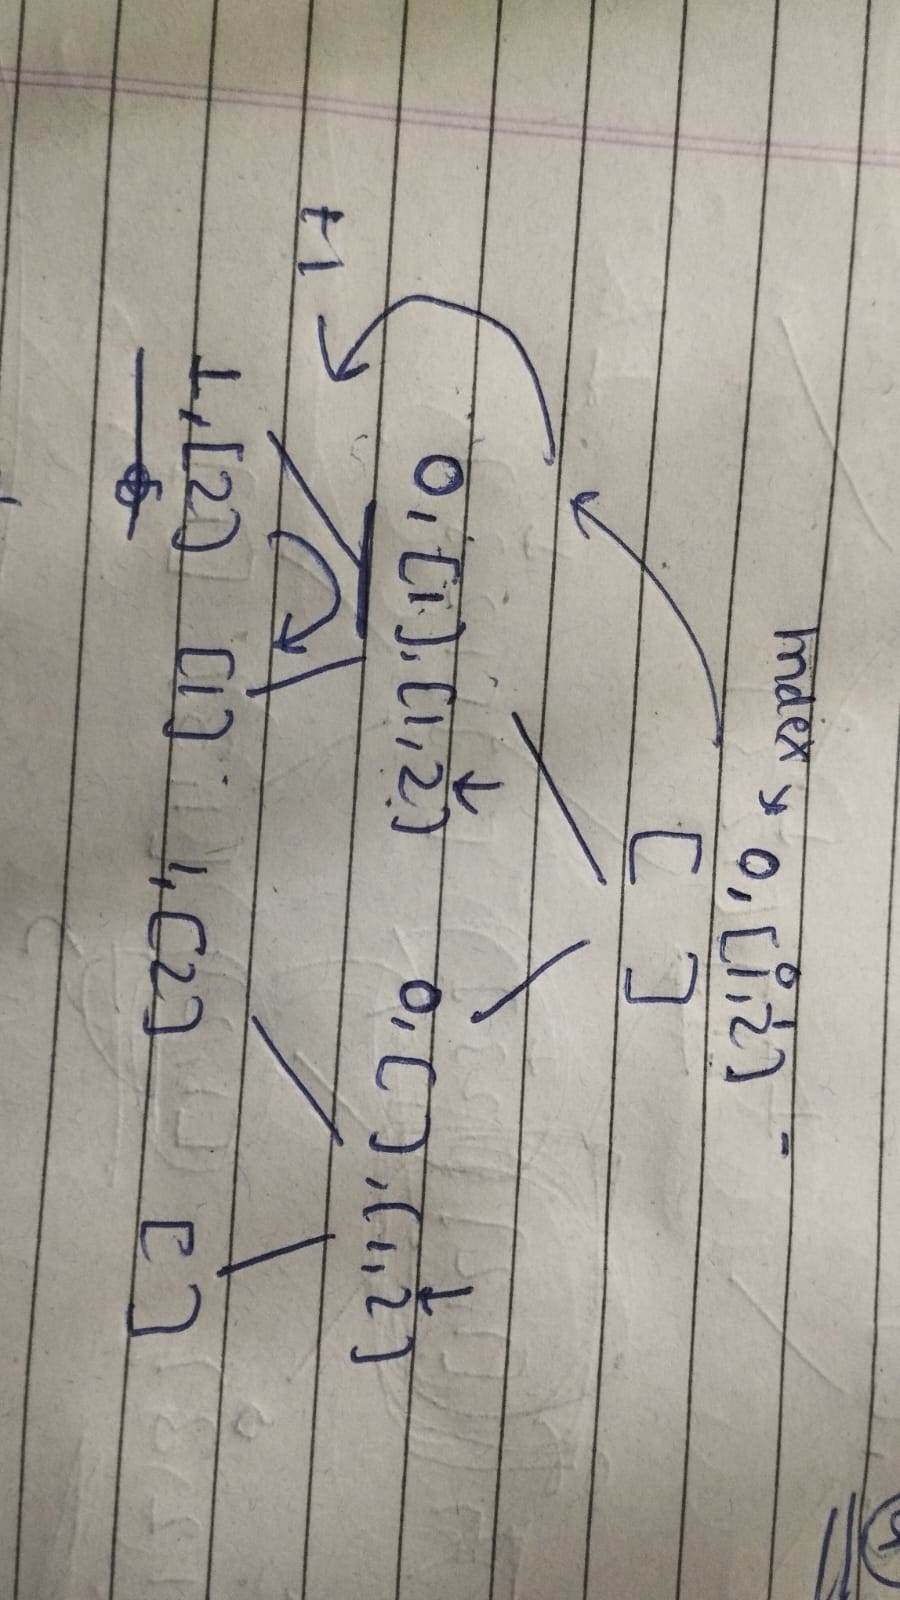 Index → 0, [1, 2]
0 1
[ ]
0, [1], [1, 2] 0, [ ], [1, 2]
+1
1, [2] [1] 1, [2] [ ]